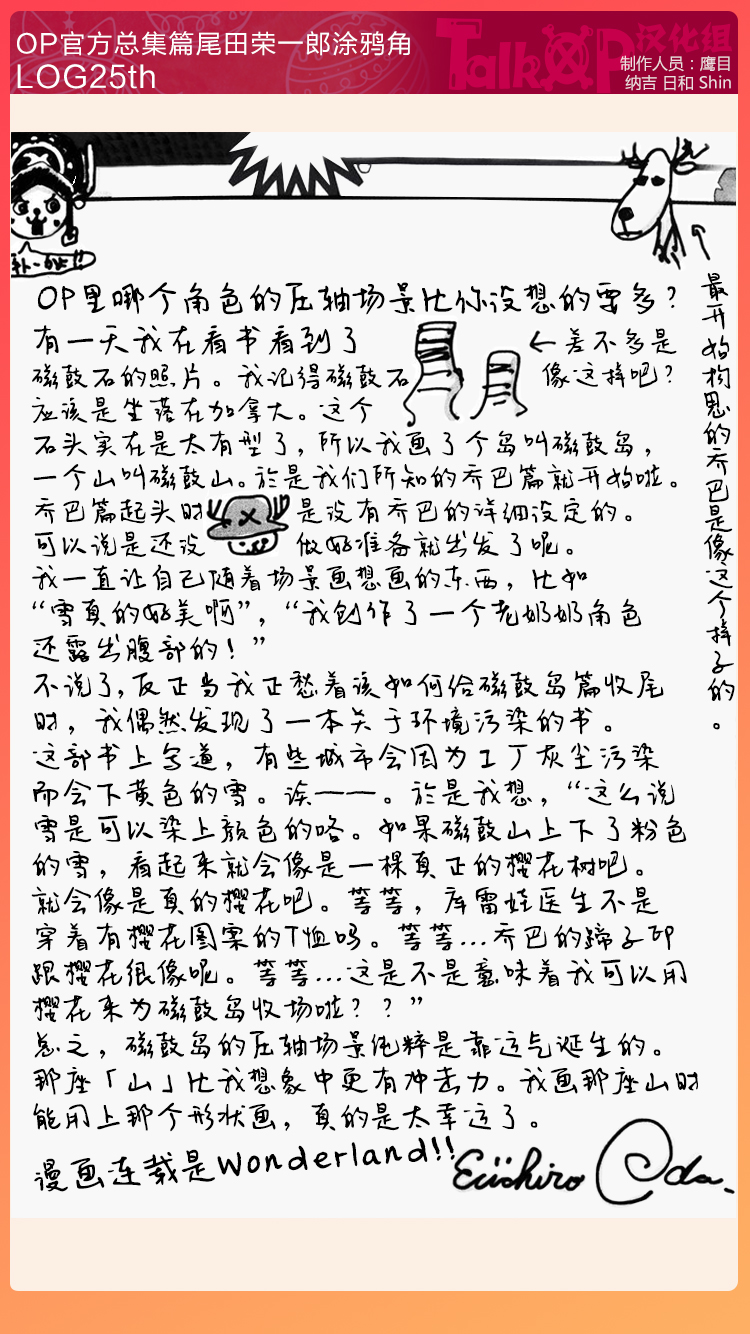 OP官方总集篇尾田荣一郎涂鸦角
LOG25th
TalkOP汉化组
制作人员：鹰目
纳吉 日和 Shin
OP里哪个角色的压轴场景比你设想的要多？
有一天我在看书看到了
←差不多是
磁鼓石的照片。我记得磁鼓石
像这样吧？
应该是坐落在加拿大。这个
石头实在是太有型了，所以我画了个岛叫磁鼓岛，
一个山叫磁鼓山。於是我们所知的乔巴篇就开始啦。
乔巴篇起头时
是没有乔巴的详细设定的。
可以说是还没
做好准备就出发了呢。
我一直让自己随着场景画想画的东西，比如
“雪真的好美啊”，“我创作了一个老奶奶角色
还露出腹部的！”
不说了，反正当我正愁着该如何给磁鼓岛篇收尾
时，我偶然发现了一本关于环境污染的书。
这部书上写道，有些城市会因为工厂灰尘污染
而会下黄色的雪。诶——。於是我想，“这么说
雪是可以染上颜色的咯。如果磁鼓山上下了粉色
的雪，看起来就会像是一棵真正的樱花树吧。
就会像是真的樱花吧。等等，库雷娃医生不是
穿着有樱花图案的T恤吗。等等...乔巴的蹄子印
跟樱花很像呢。等等...这是不是意味着我可以用
樱花来为磁鼓岛收场啦？？”
总之，磁鼓岛的压轴场景纯粹是靠运气诞生的。
那座「山」比我想象中更有冲击力。我画那座山时
能用上那个形状画，真的是太幸运了。
漫画连载是Wonderland!!
Eiichiro Oda
最开始构思的乔巴是像这个样子的。